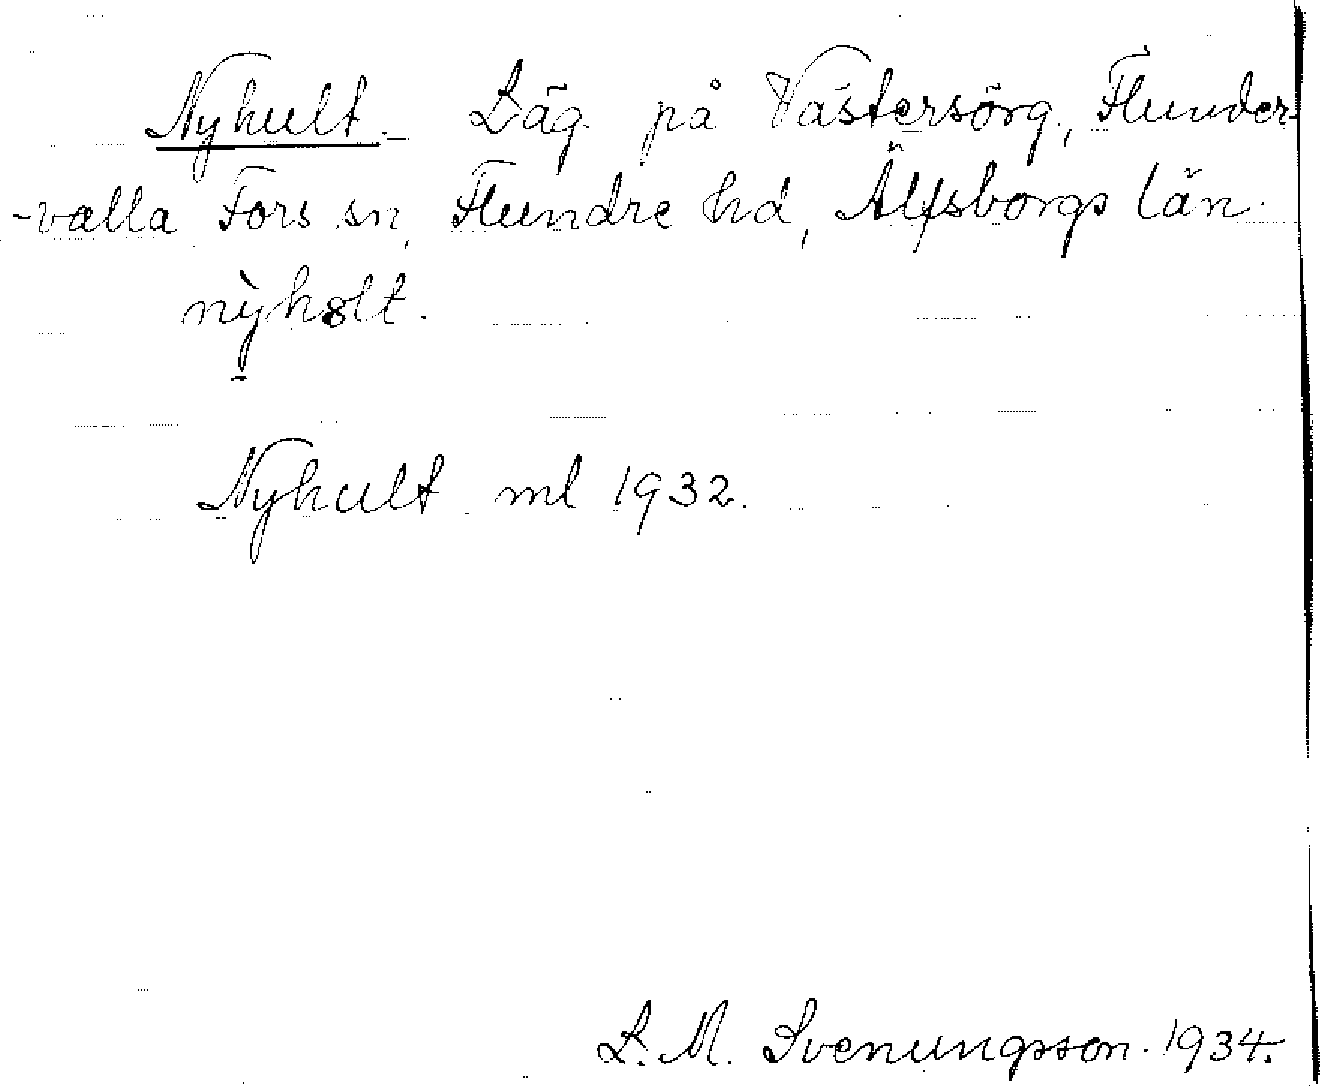 Nyhult. Läg. på Västersörg., Flunder-
-valla Fors sn, Flundre hd, Älfsborgs län.
nỳhslt.
Nyhult ml 1932.
L. M. Svenungsson. 1934.